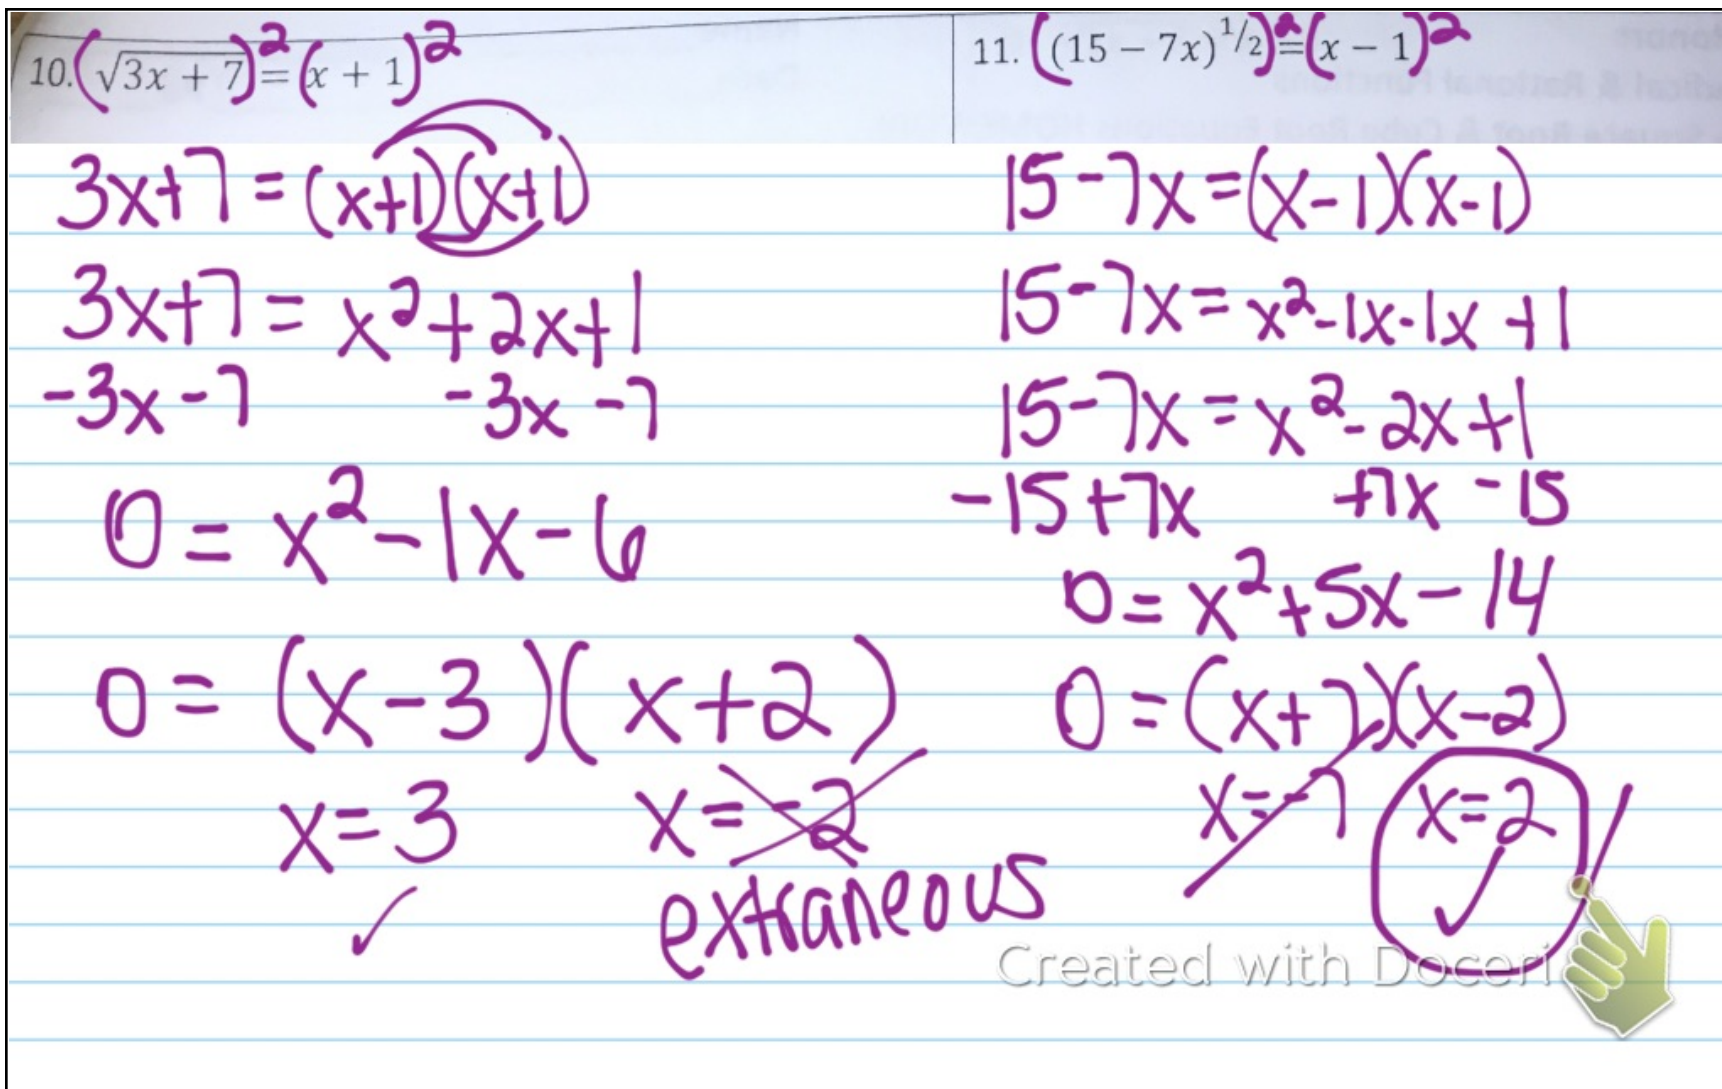 10. (√3x + 7)² = (x + 1)²
3x+7 = (x+1)(x+1)
3x+7 = x²+2x+1
-3x-7 -3x-7
0 = x²-1x-6
0 = (x-3)(x+2)
x=3 x=-2
✓ extraneous
11. ((15 – 7x)^1/2)² = (x – 1)²
15-7x=(x-1)(x-1)
15-7x=x²-1x-1x+1
15-7x=x²-2x+1
-15+7x +7x-15
0=x²+5x-14
0=(x+7)(x-2)
x=-7 x=2 ✓
✓
Created with Doceri